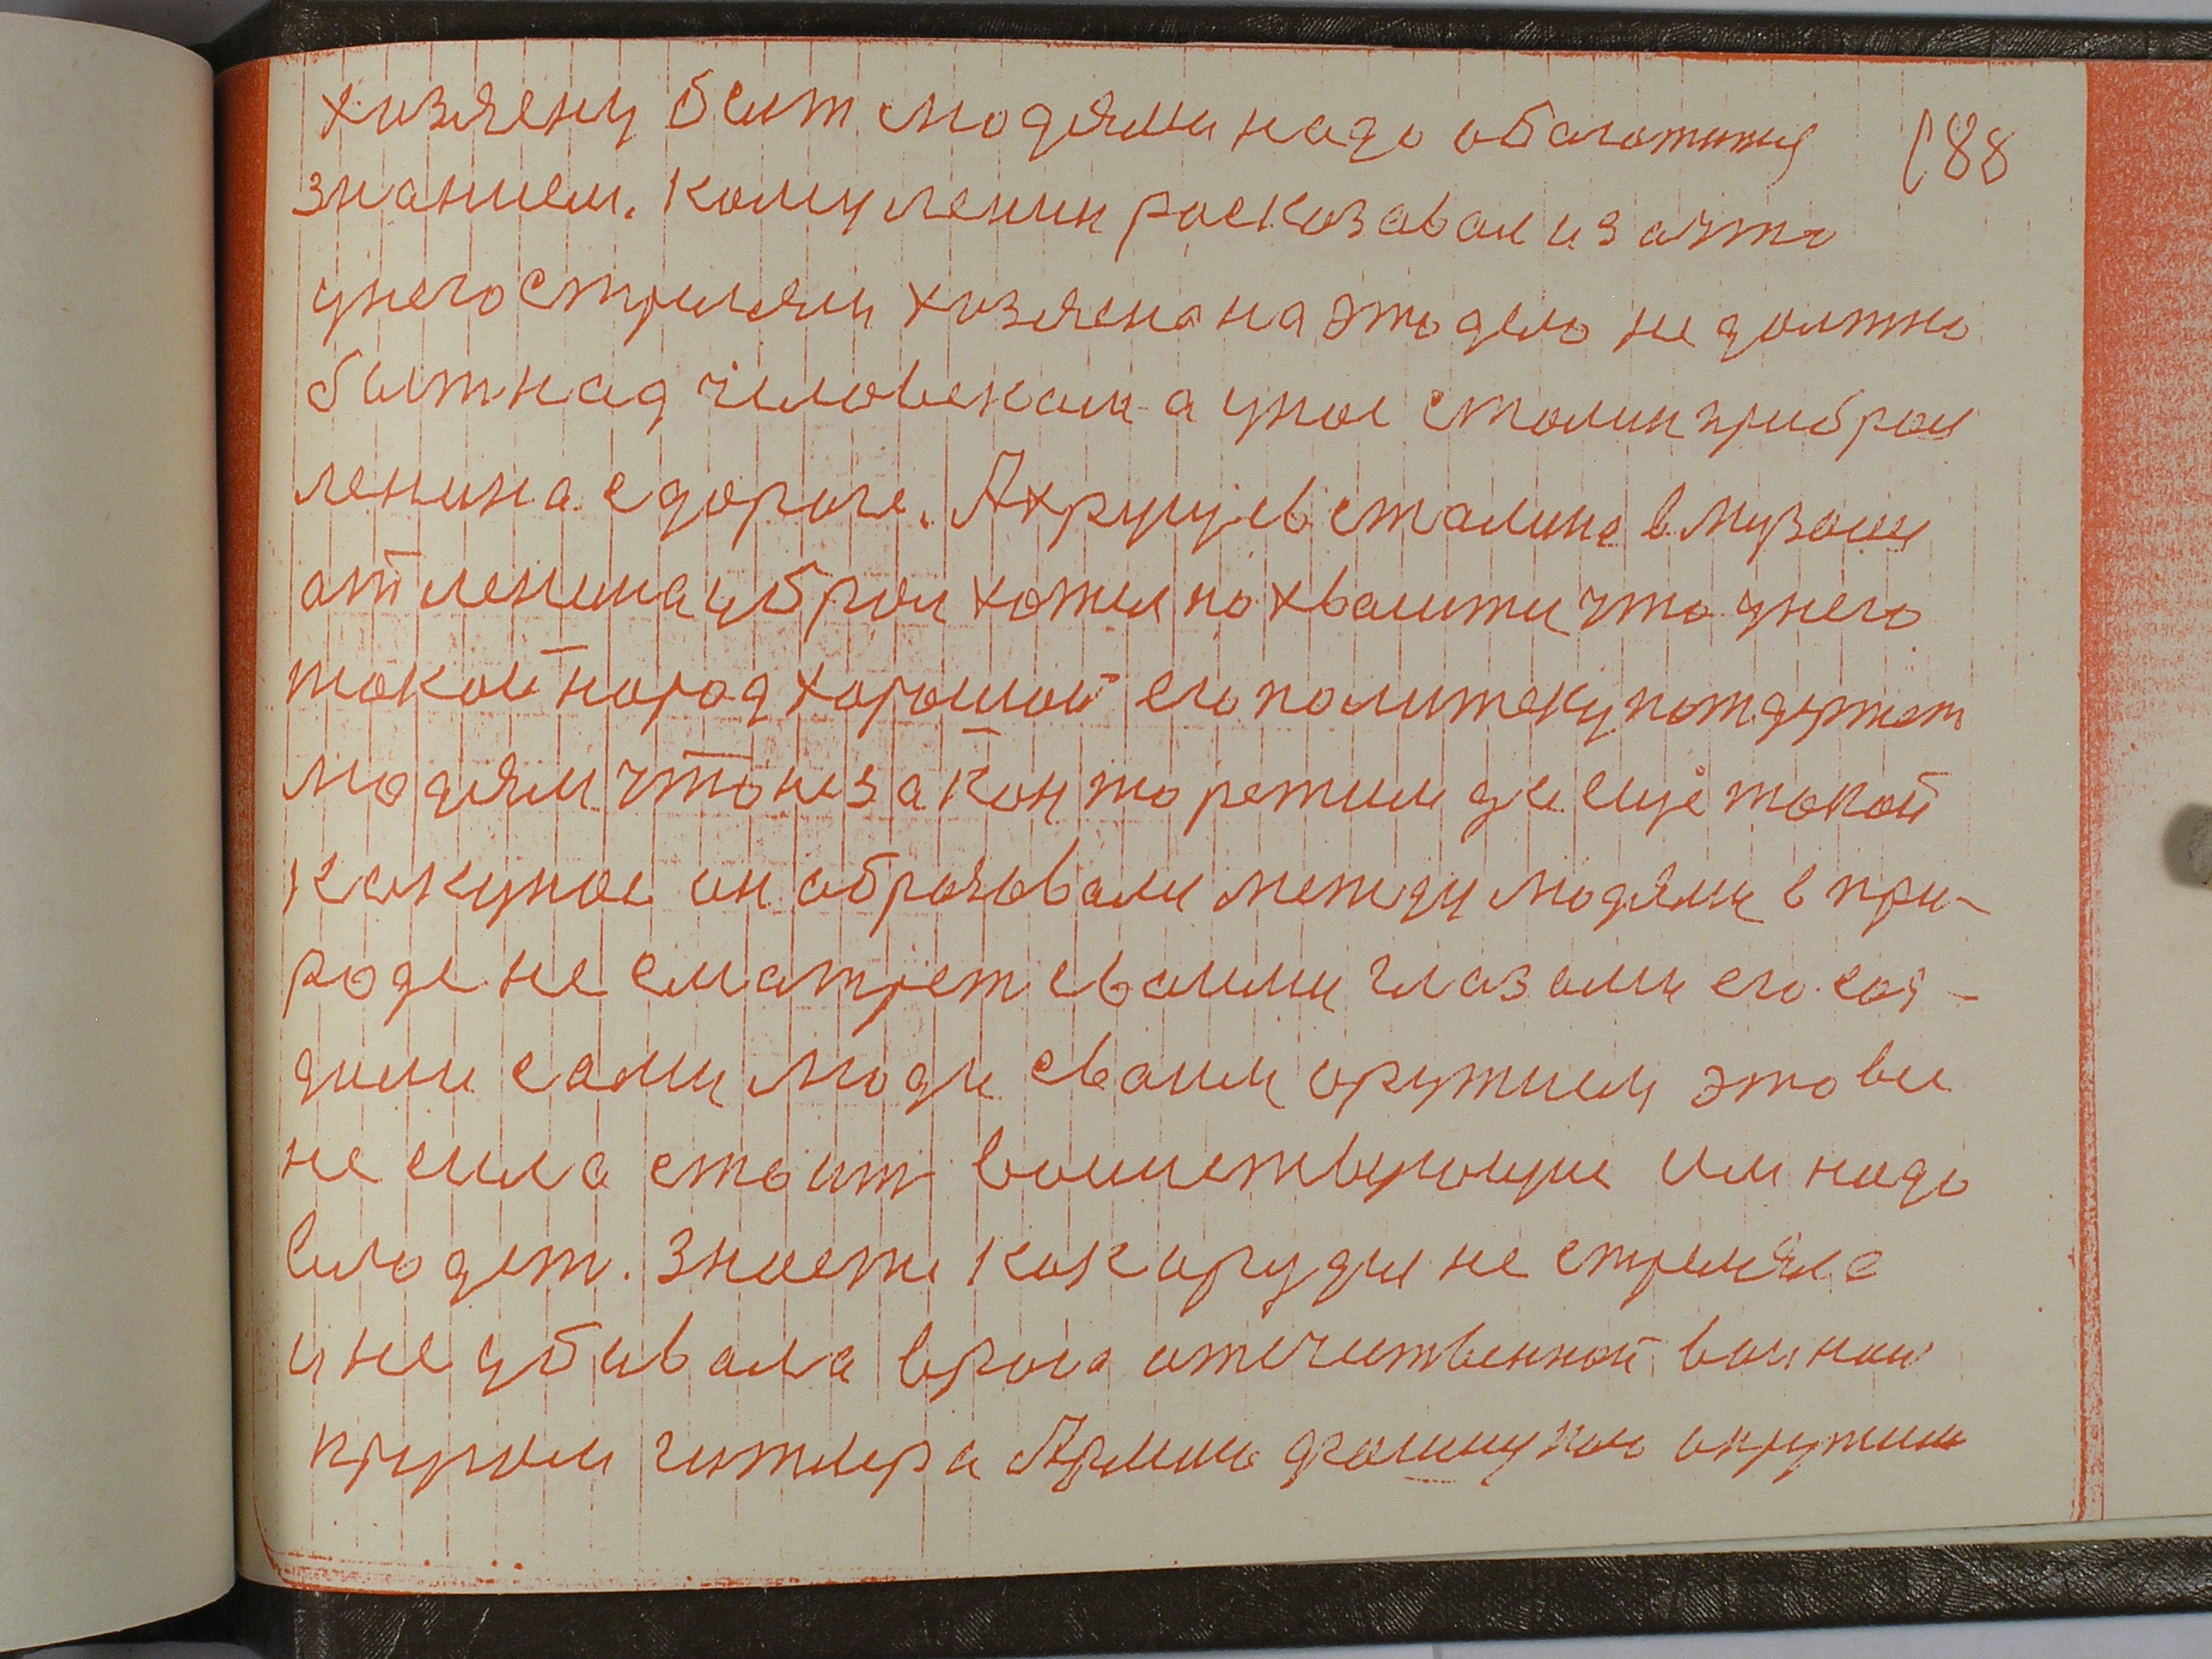 хизяену бит людями надо обагатится 188
знанием. Кому ленин расказавал из ачто
унего стриляли хизяена на это дело не должно
бытнад чиловекам а унас сталин прибрал
ленина с дороге. Ахрущев сталина в музоли
атленина убрал хотил похвалити что унего
такой народ харошой его политеку потдержат
людям что не закон то режим де ещё такой
какунас он абразовали между людями в при-
роде не сматрет сваими глазами его саз-
дали сами люди сваим оружием это ви
не сила стоит воинствующие им надо
владет. знаети как орудия не стреляла
и не убивала врага отечиственной войнои
кругом гитлера Армию дгалину нас окружили